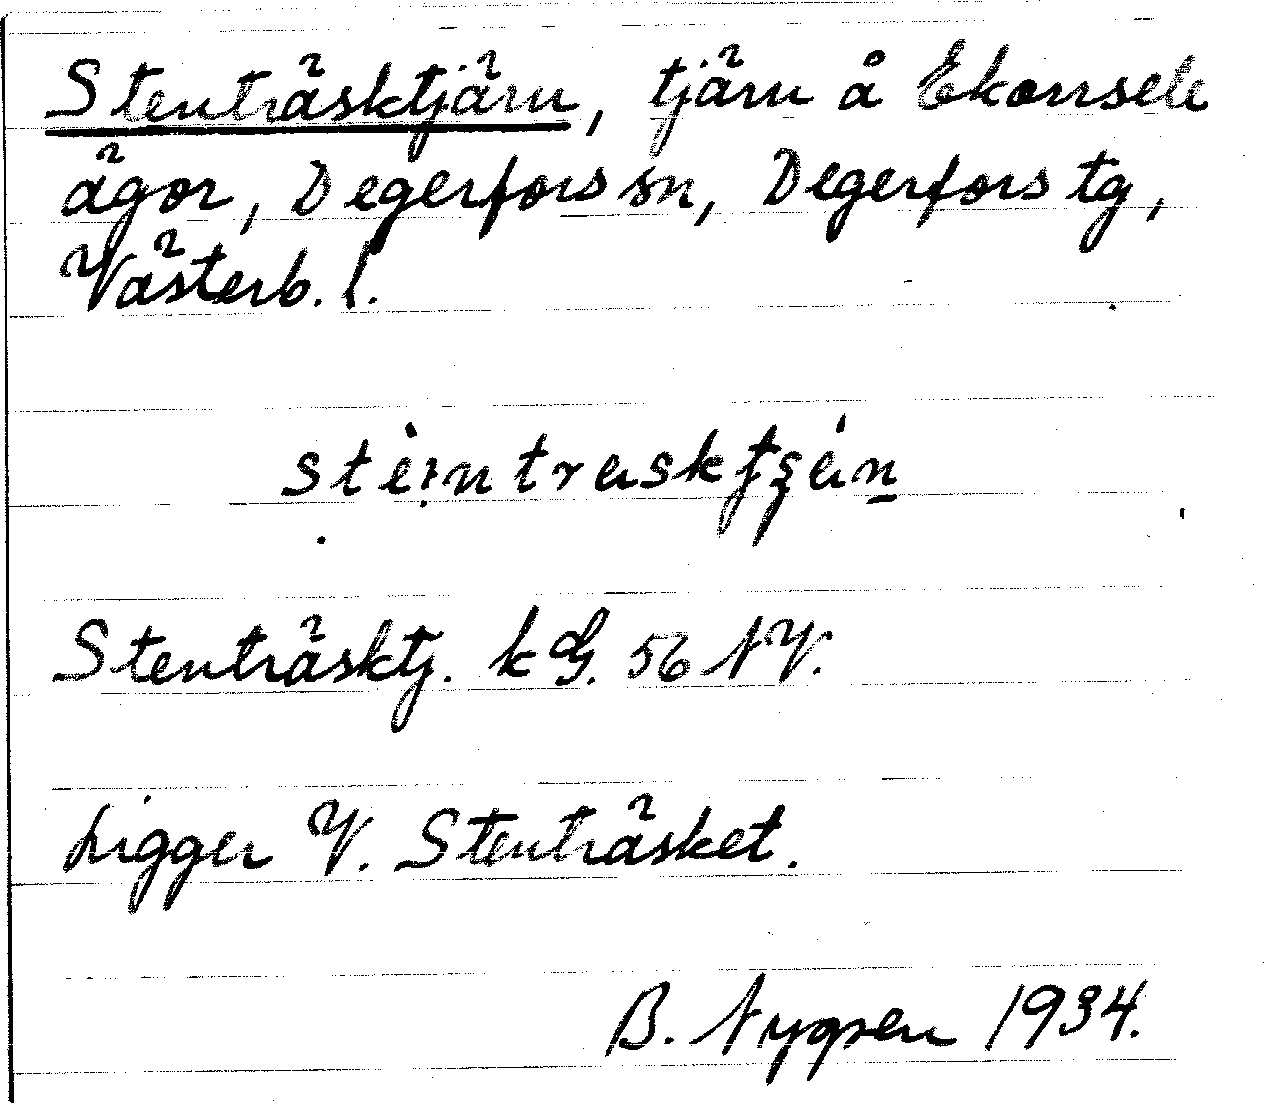 Stenträsktjärn, tjärn å Ekorrsele
ägor, Degerfors sn, Degerfors tg,
Västerb. l.
Stenträsktj. k G. 56 NV.
Ligger V. Stenträsket.
B. 1934.